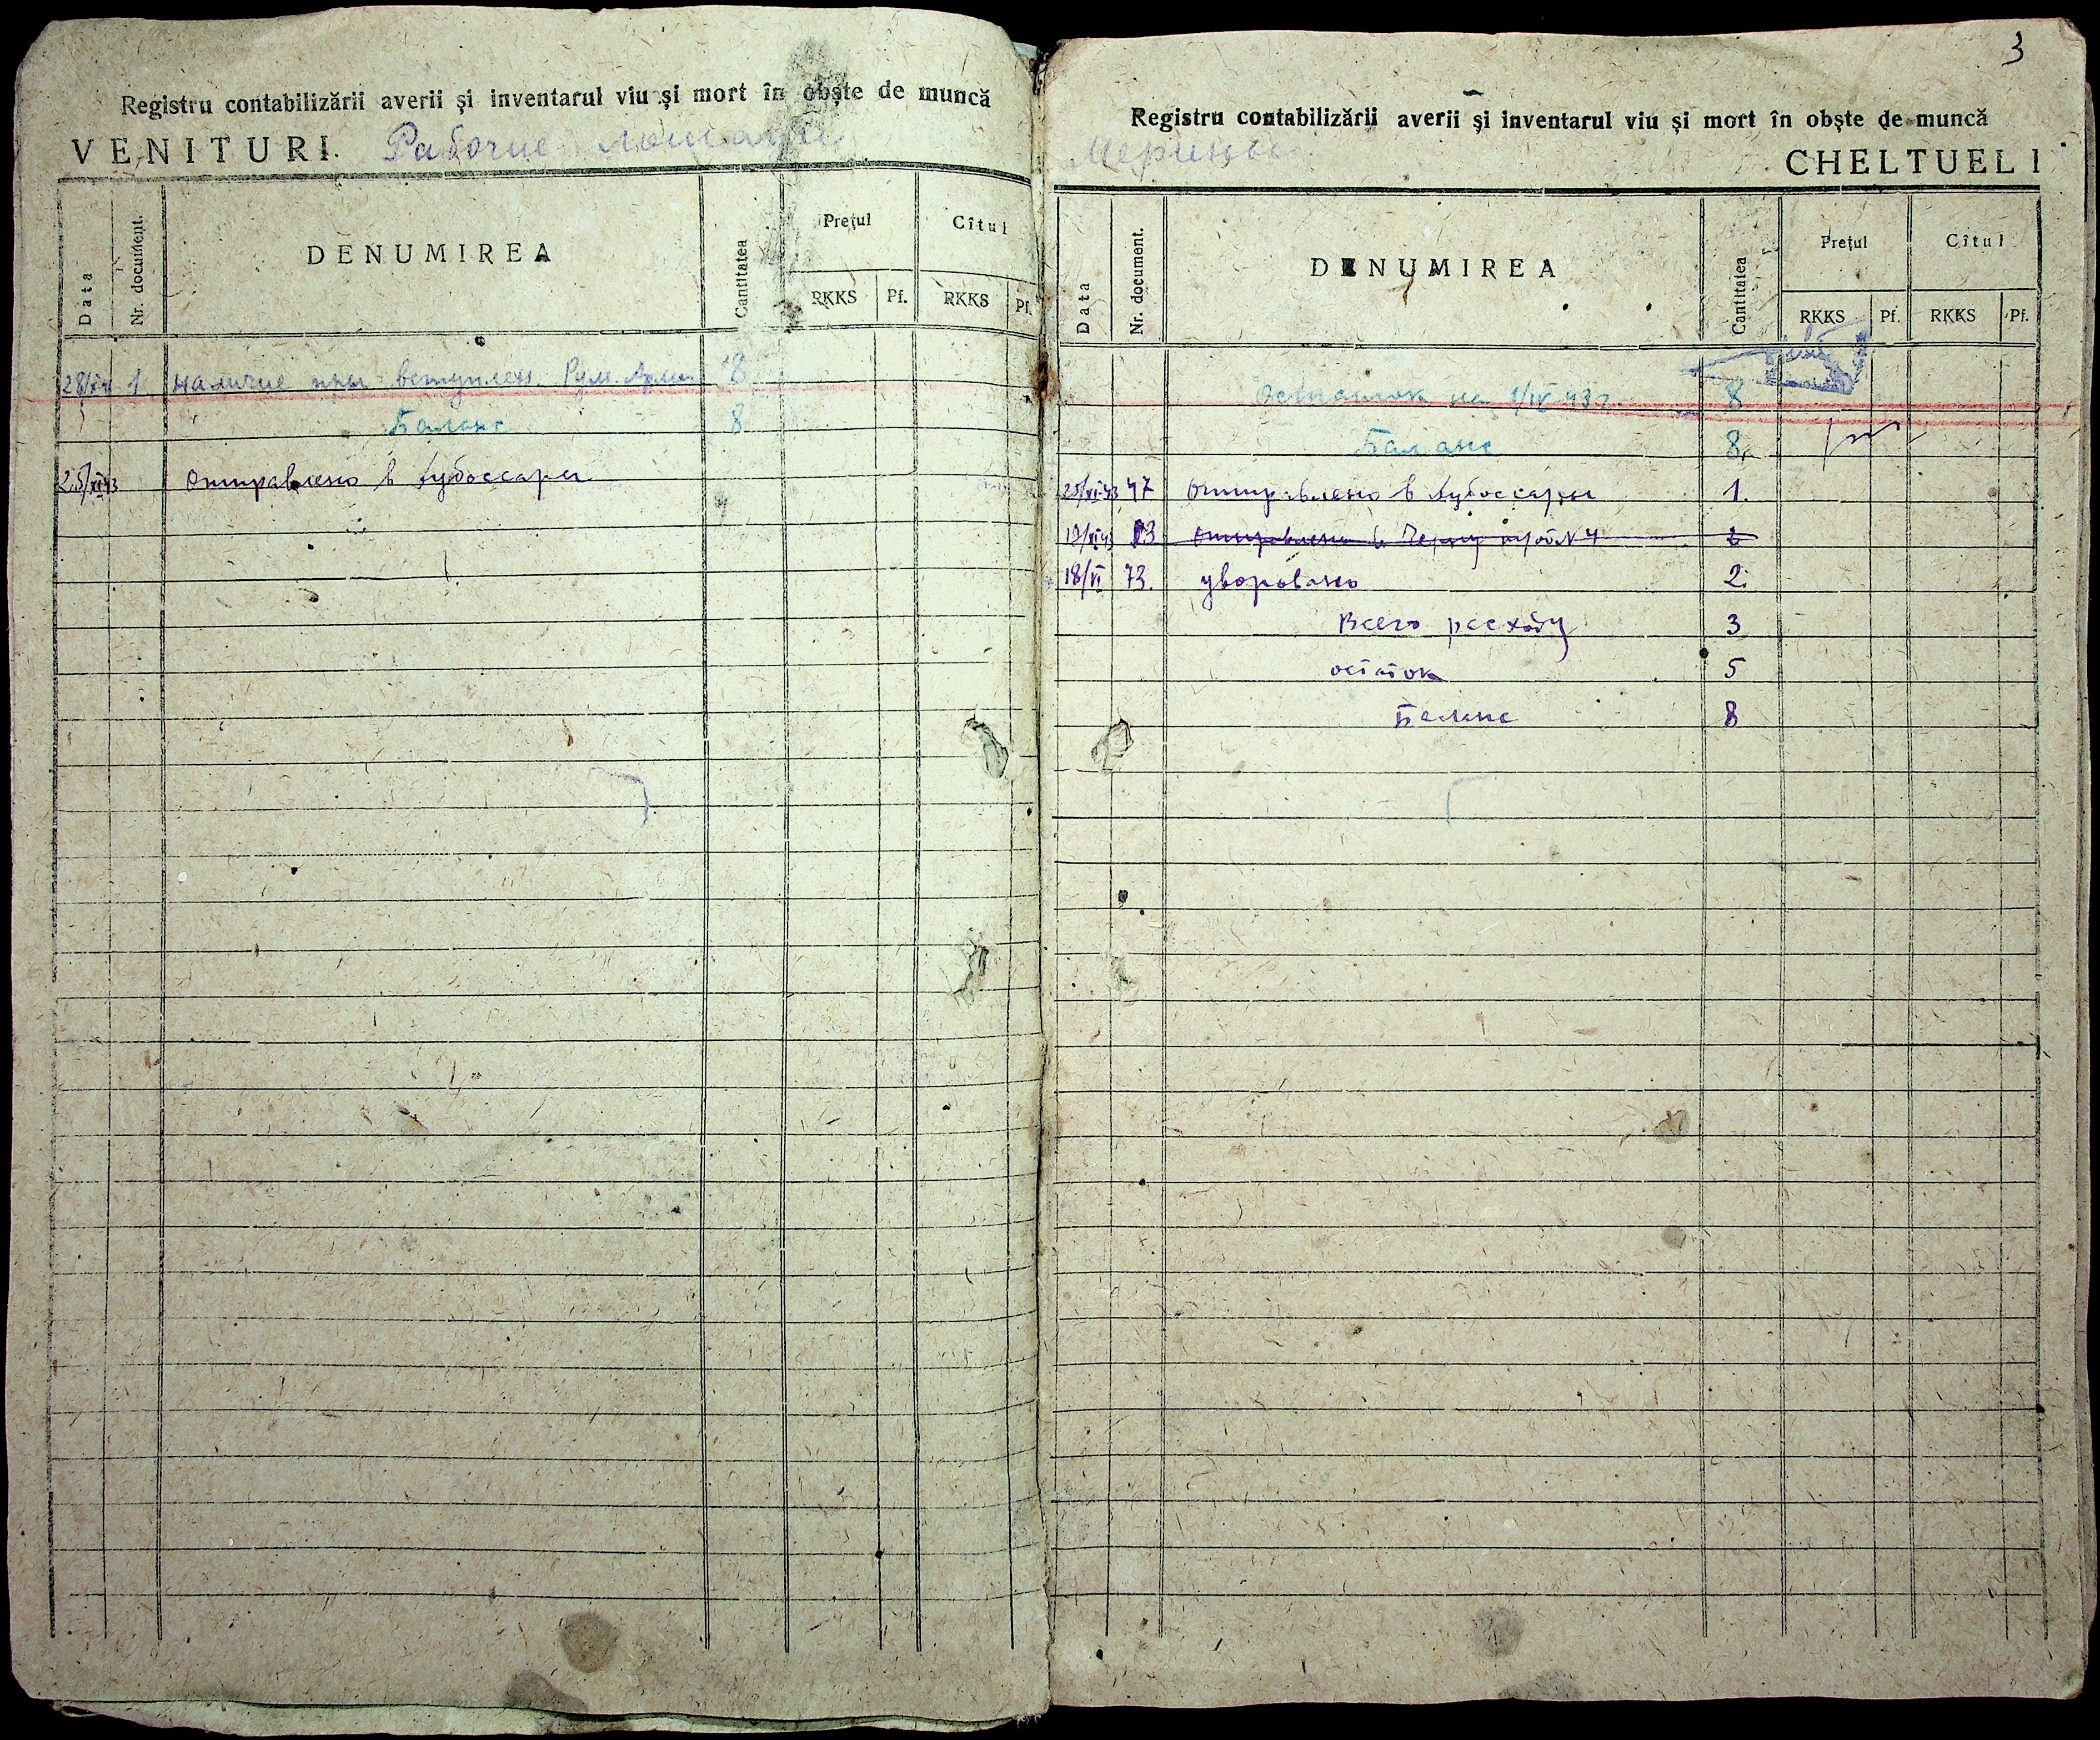 Registru contabilizării averii și inventarul viu și mort în obște de muncă
VENITURI. Рабочие лошади
Data Nr. document. DENUMIREA Cantitatea Prețul Cîtul
RKKS Pf. RKKS Pf.
1 наличие при вступлен. Рум. Арми 8
Баланс 8
25/XI 43 Отправлено в Дубоссары
3
Registru contabilizării averii și inventarul viu și mort în obște de muncă
Мерины
CHELTUELI
Data Nr. document. DENUMIREA Cantitatea Prețul Cîtul
RKKS Pf. RKKS Pf.
Остаток на 1/IV-43г. 8
Баланс 8
25/XI-43 47 Отправлено в Дубоссары 1.
19/XI 43 Отправлено в №4
18/VI 73. уворовано 2.
Всего расходу 3
остаток 5
Баланс 8